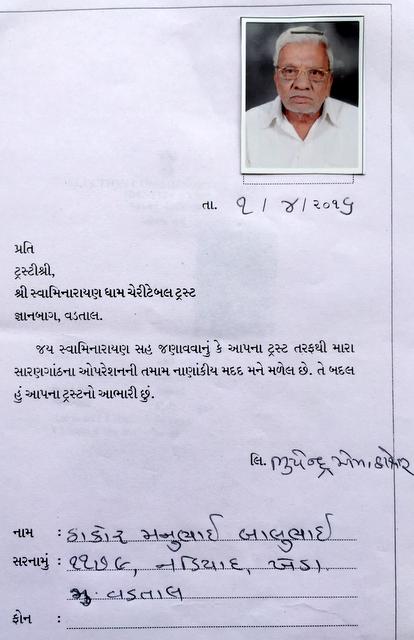 તા. ૧ / ૪ / ૨૦૧૬
પ્રતિ
ટ્રસ્ટીશ્રી,
શ્રી સ્વામિનારાયણ ધામ ચેરીટેબલ ટ્રસ્ટ
જ્ઞાનબાગ, વડતાલ.
જય સ્વામિનારાયણ સહ જણાવવાનું કે આપના ટ્રસ્ટ તરફથી મારા
સારણગાંઠના ઓપરેશનની તમામ નાણાંકીય મદદ મને મળેલ છે. તે બદલ
હું આપના ટ્રસ્ટનો આભારી છું.
લિ.
નામ : ઠાકોર મનુભાઈ બાલુભાઈ
સરનામું : ૧૧૭૬, નડિયાદ, ખેડા.
મુ. વડતાલ
ફોન :